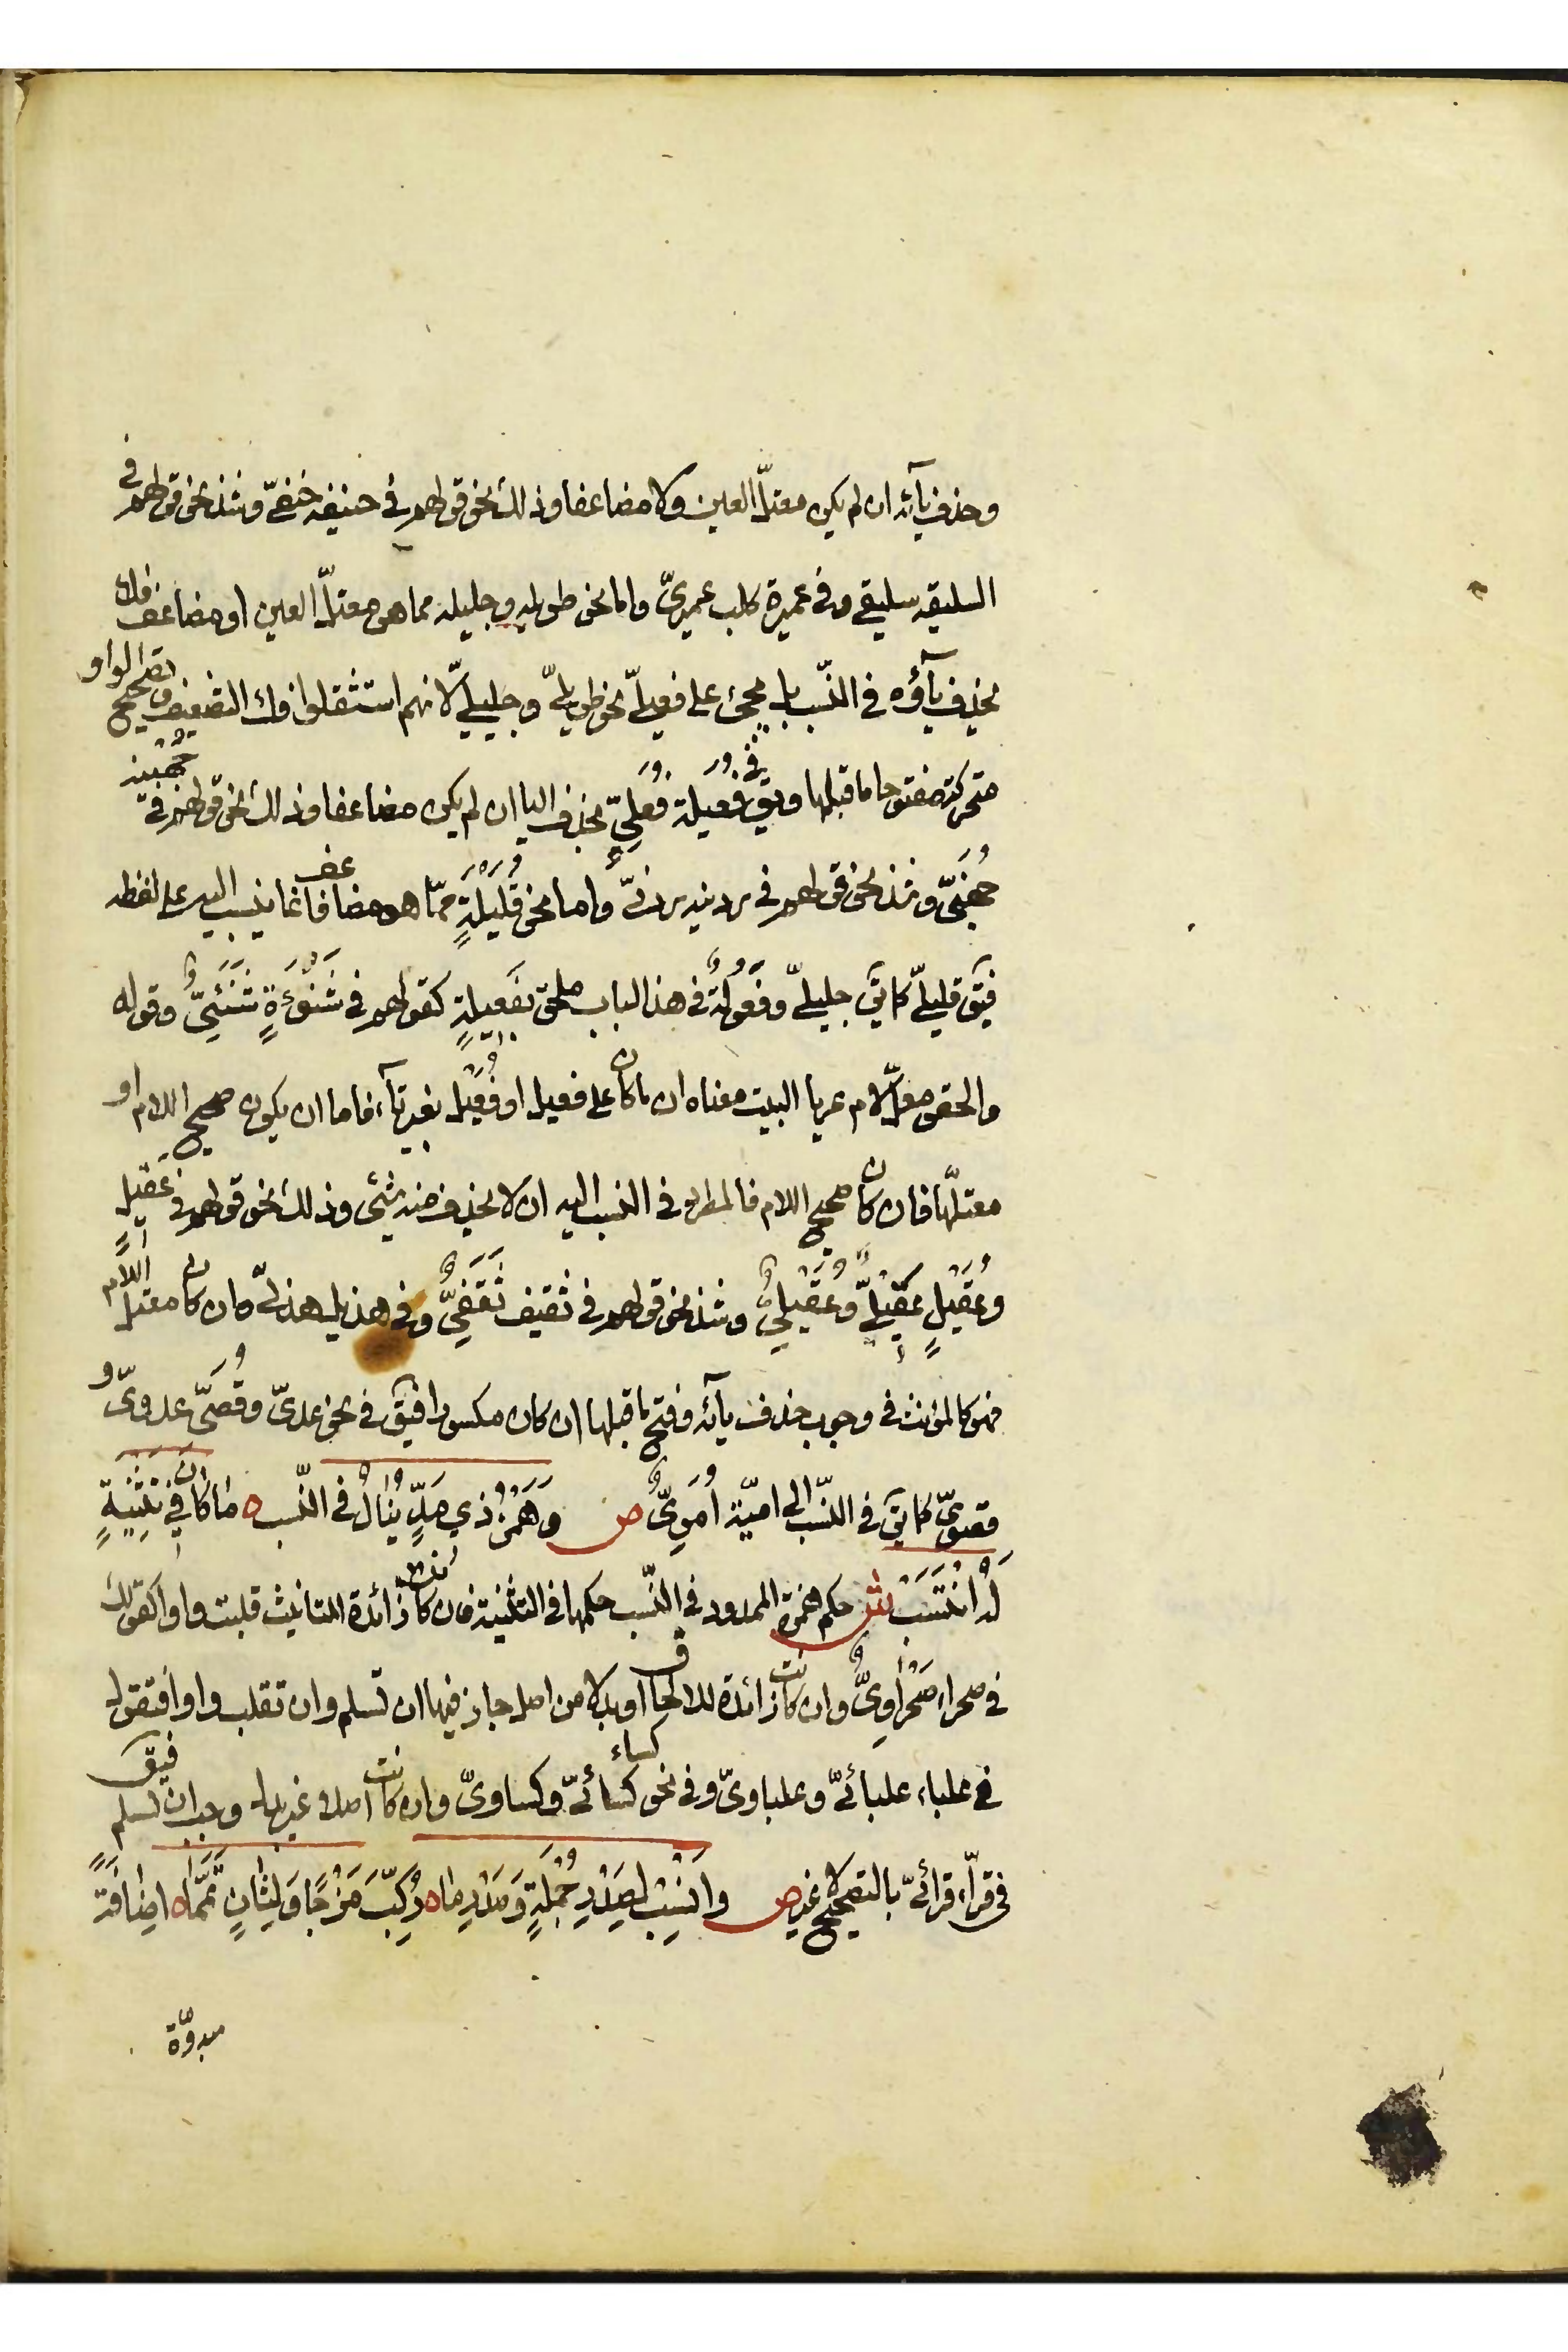 وحذف يآئه ان لم يكن معتلّ العين ولا مضاعفا وذلك نحو قولهم في حنيفه حنفىّ وشذ نحو قولهم في
السليقه سليقى وفى عميرة كلب عميرىّ واما نحو طويله وجليله مما هو معتلّ العين او مضاعف فلا
يحذف يآؤه في النّسب بل يجئ على فعيلىّ نحو طويلىّ وجليلىّ لانهم استثقلوا فك التضعيف وتصحيح الواو
متحركة مفتوحا ما قبلها ويق في فُعيلة فُعَلِىّ بحذف اليا ان لم يكن مضاعفا وذلك نحو قولهم في جُهَينه
جُهَنِىّ وشذ نحو قولهم في ردينه ردينىّ واما نحو قُلَيْلَةٍ ممّا هو مضاعف فانما ينسب اليه على لفظه
فيق قليلىّ كما يق جليلىّ وفَعُولَةُ في هذا الباب ملحق بفَعِيلةٍ كقولهم في شَنُوْءَةٍ شَنَئِىُّ وقوله
والحقوا معلّ لام عريا البيت معناه ان ما كان على فعيل او فُعَيْل بغير تآء فاما ان يكون صحيح اللام او
معتلّها فان كان صحيح اللام فالمطرد في النسب اليه ان لا يحذف منه شئى وذلك نحو قولهم في عَقِيلٍ
وعُقَيْلٍ عَقِيْلىّ وعُقَيْلِىُّ وشذ نحو قولهم في ثقيف ثَقَفِىُّ وفى هذيل هذلىّ وان كان معتلّ اللام
فهو كالمؤنث في وجوب حذف يآئه وفتح ما قبلها ان كان مكسورا فيق في نحو عدىّ وقُصَىّ عدوىّ و
قصوىّ كما يق في النّسب الى اميّة اُمَوِىُّ ص وَهَمْزُ ذِي مَدٍّ يُنَالُ في النّسب ه مَا كَانَ في تَثْنِيَةٍ
لَهُ انْتَسَبَ ش حكم همزة الممدود في النّسب حكمها في التثنيه فان كانت زائدة للتانيث قلبت واوا كقولك
في صحراء صَحْرَاوِىُّ وان كانت زائدة للالحاق او بدلا من اصل جاز فيها ان تسلم وان تقلب واوا فتقول
في علباء علبائىّ وعلباوىّ وفى نحو كساء كسائىّ وكساوىّ وان كانت اصلا غير بدل وجب ان تسلم فيق
في قرّاء قرائىّ بالتصحيح لا غير ص وانْسِبْ لِصَدْرِ جُمْلَةٍ وَصَدْرِ مَا ه رُكِّبَ مَزْجًا وَلِثَانٍ تَمَّمَا ه اِضَافَةً
مبدوّة